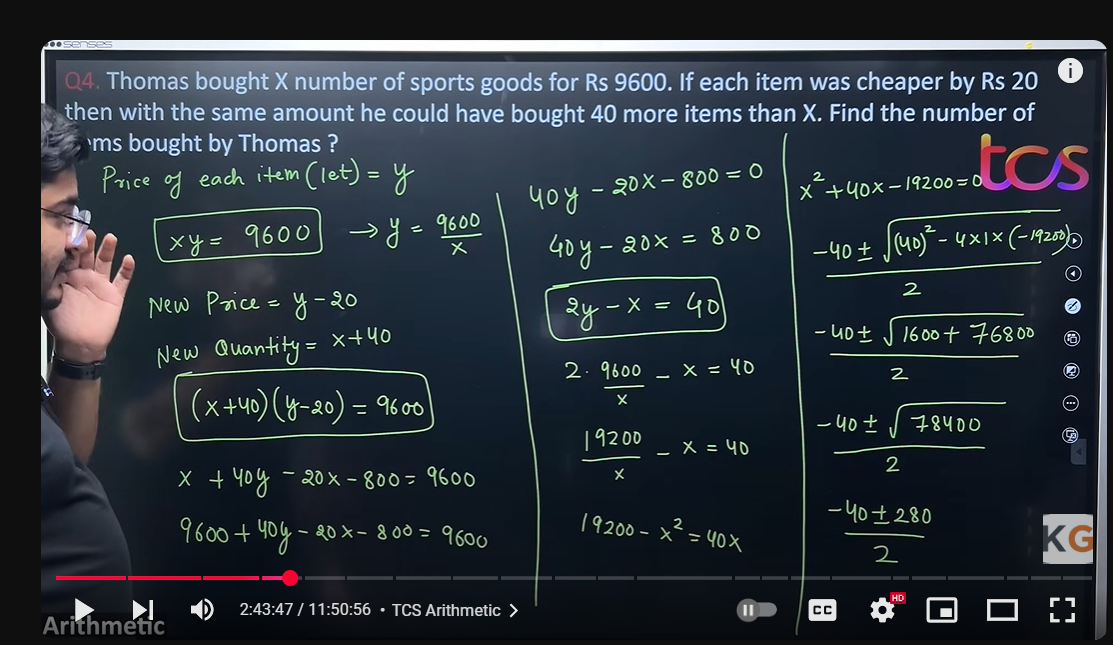 senses
Q4. Thomas bought X number of sports goods for Rs 9600. If each item was cheaper by Rs 20
then with the same amount he could have bought 40 more items than X. Find the number of
ms bought by Thomas ?
tcs
Price of each item (let) = y
xy = 9600 → y = 9600/x
New Price = y - 20
New Quantity = x+40
(x+40)(y-20) = 9600
x + 40y - 20x - 800 = 9600
9600 + 40y - 20x - 800 = 9600
40y - 20x - 800 = 0
40y - 20x = 800
2y - x = 40
2 · 9600/x - x = 40
19200/x - x = 40
19200 - x² = 40x
x² + 40x - 19200 = 0
-40 ± √(40)² - 4×1×(-19200) / 2
-40 ± √1600 + 76800 / 2
-40 ± √78400 / 2
-40 ± 280 / 2
KG
2:43:47 / 11:50:56 • TCS Arithmetic >
CC
HD
Arithmetic